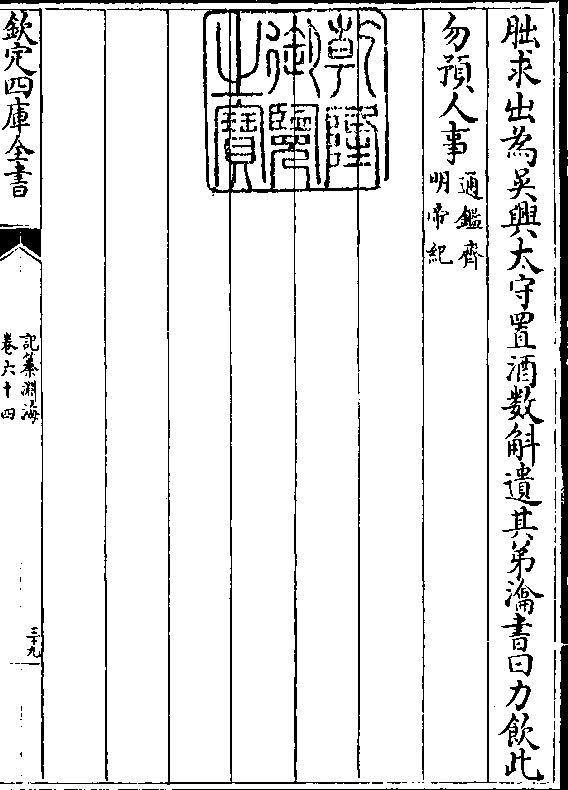 朏求出為吳興太守置酒數斛遺其弟瀹書曰力飲此
勿預人事
通鑑齊
明帝紀
乾隆
御覽
之寶
欽定四庫全書
記纂淵海
卷六十四
三十九